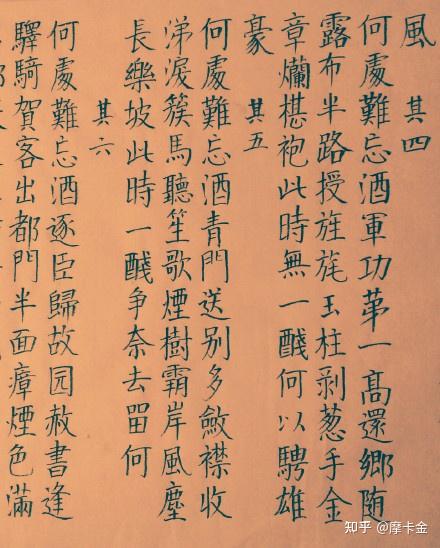 風 其四
何處難忘酒軍功苐一高還鄉随
露布半路授旌旄玉柱剥葱手金
章爛椹袍此時無一醆何以騁雄
豪 其五
何處難忘酒青門送别多斂襟收
涕淚簇馬聽笙歌煙樹霸岸風塵
長樂坡此時一醆争奈去畱何
其六
何處難忘酒逐臣歸故园赦書逢
驛騎賀客出都門半面瘴煙色滿
知乎 @摩卡金